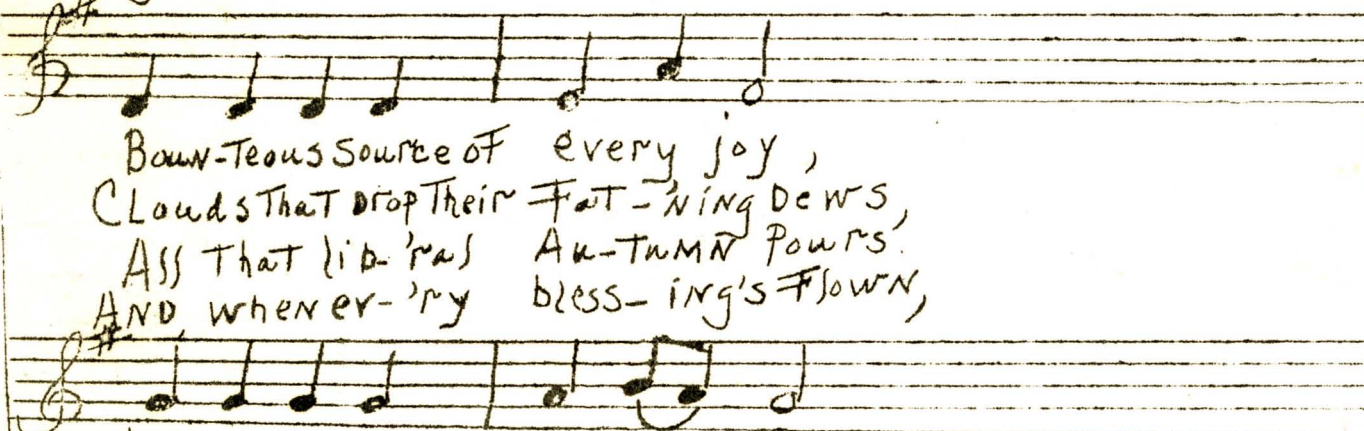 Boun-Teous Source of every joy,
Clouds That Drop Their Fat-'ning Dews,
All That lib-'ral Au-Tumn Pours.
And, when ev-'ry bless-ing's Flown,